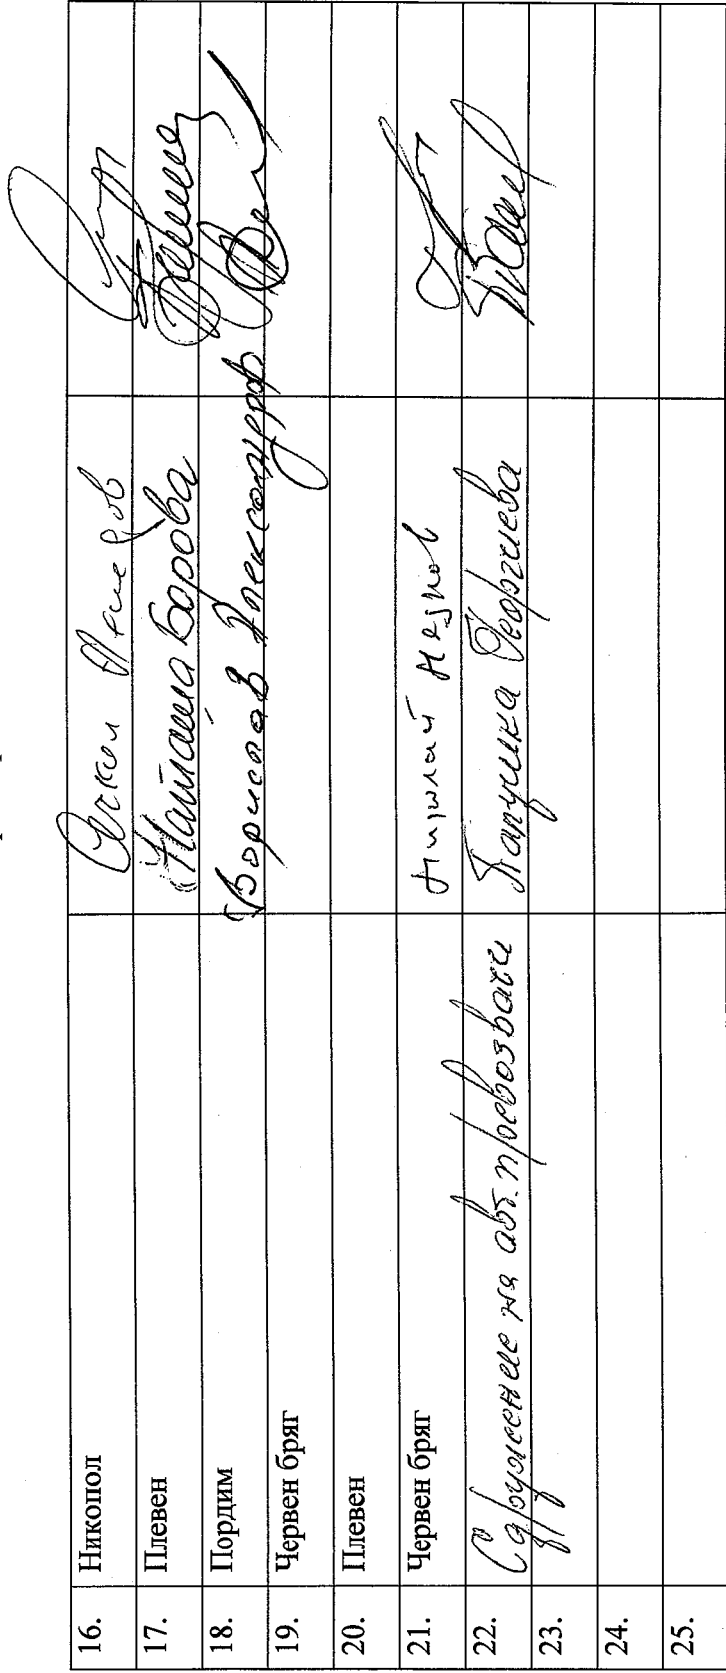 16. Никопол
17. Плевен Наташа Борова
18. Пордим Борислав Александров
19. Червен бряг
20. Плевен
21. Червен бряг Николай
22. Сдружение на авт. превозвачи Георгиева
23.
24.
25.